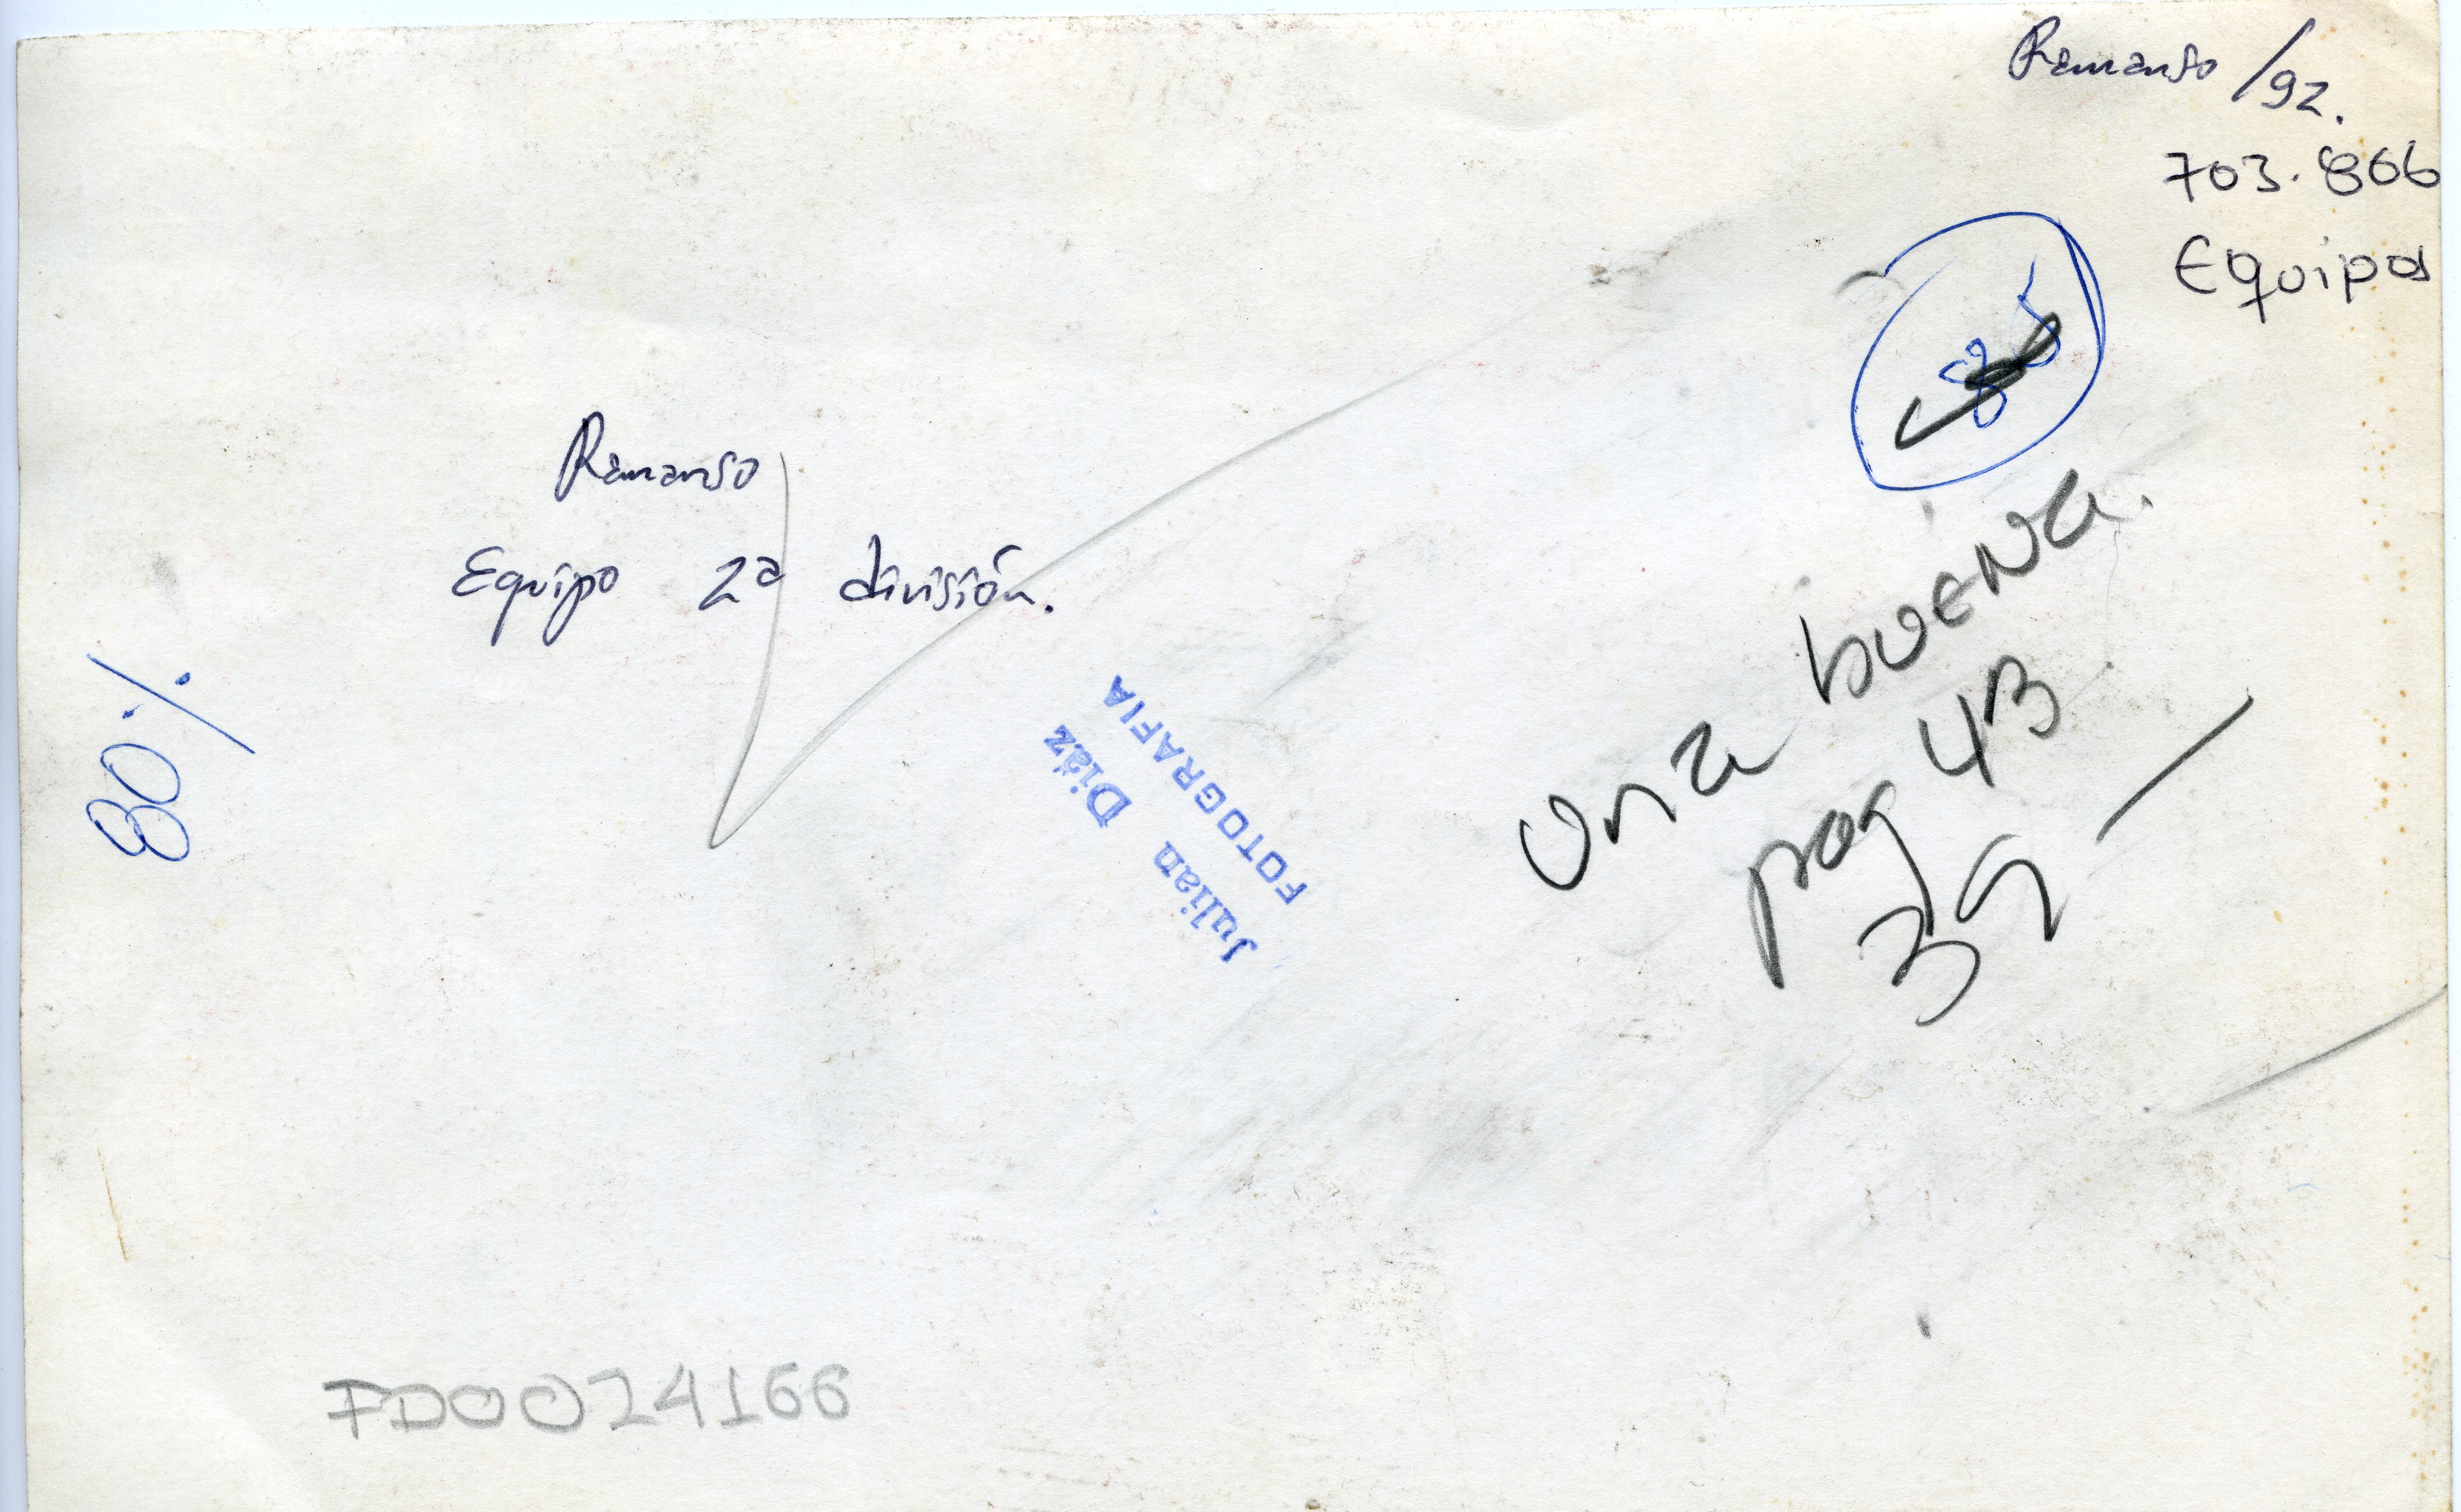 Remanso /92.
703.866
Equipos
85
Remanso
Equipo 2ª división.
80%
Julian Diáz
FOTOGRAFIA
Onza buena.
pag 43
39
FD0024166